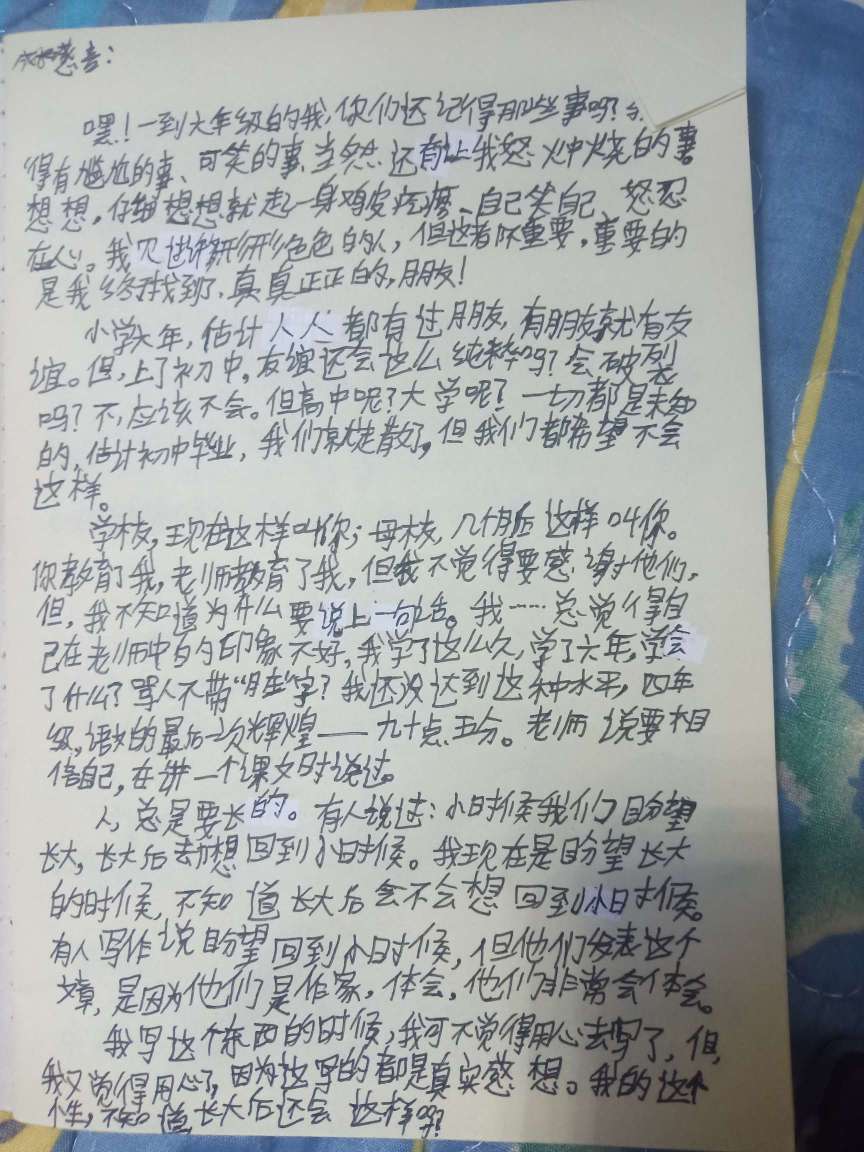 成长感言：
嘿！一到六年级的我，你们还记得那些事吗？
得有尴尬的事、可笑的事、当然还有让我怒火中烧的事
想想，仔细想想就起一身鸡皮疙瘩、自己笑自己、怒忍
在心。我见过许多形形色色的人，但这都不重要，重要的
是我终于找到了，真真正正的，朋友！
小学六年，估计人人都有过朋友，有朋友就有友
谊。但，上了初中，友谊还会这么纯粹吗？会破裂
吗？不，应该不会。但高中呢？大学呢？一切都是未知
的，估计初中毕业，我们就走散了，但我们都希望不会
这样。
学校，现在这样叫你；母校，几个月后这样叫你。
你教育了我，老师教育了我，但我不觉得要感谢他们，
但，我不知道为什么要说上一句话。我……总觉得自
己在老师中的印象不好，我学了这么久，学了六年，学会
了什么？骂人不带“脏”字？我还没达到这种水平，四年
级，语文的最后一次辉煌——九十点五分。老师说要相
信自己，在讲一个课文时说过。
人，总是要长的。有人说过：小时候我们盼望
长大，长大后却想回到小时候。我现在是盼望长大
的时候，不知道长大后会不会想回到小时候。
有人写作说盼望回到小时候，但他们发表这个
文章，是因为他们是作家，体会，他们非常会体会。
我写这个东西的时候，我可不觉得用心去写了，但，
我又觉得用心了，因为这写的都是真实感想。我的这个
个性，不知道长大后还会这样吗？